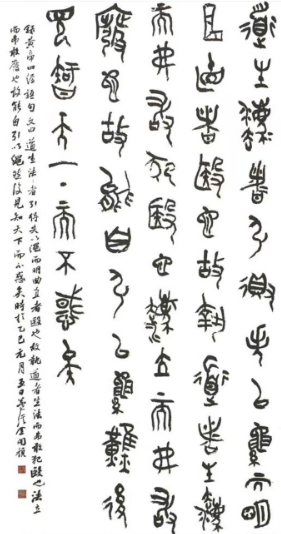 道生灋者引得失以繩而明
曲直者殹也故執道者生灋
而弗敢犯殹也灋立而弗敢
廢也故能自引以繩然後
見知天下而不惑矣
錄黃帝四經語句文曰道生法者引得失以繩而明曲直者殹也故執道者生法而弗敢犯殹也法立
而弗敢廢也故能自引以繩然後見知天下而不惑矣時於乙巳元月五日